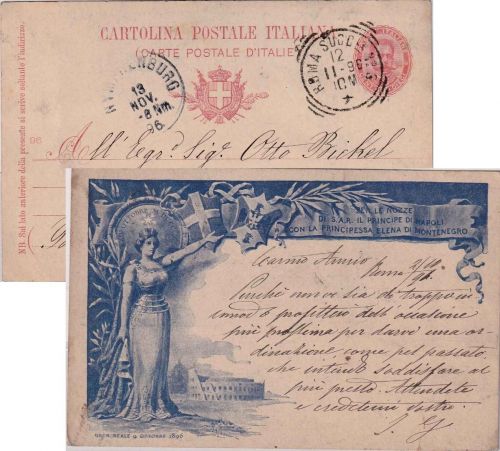 CARTOLINA POSTALE ITALIANA
(CARTE POSTALE D'ITALIE)
ROMA SUCC
12
11-96
10M
13
NOV.
96.
96
NB. Sul lato anteriore della presente si scrive soltanto l'indirizzo.
All' Egr. Sig. Otto Bickel
PER LE NOZZE
DI S.A.R. IL PRINCIPE DI NAPOLI
CON LA PRINCIPESSA ELENA DI MONTENEGRO
Roma
Perchè non vi sia di troppo in
comodo profittero dell'occasione
più prossima per darvi una or
dinazione come pel passato,
che intendo soddisfare al
più presto. Attendete
e credetemi vostro
S. G.
ORDIN. REALE 9 OTTOBRE 1896